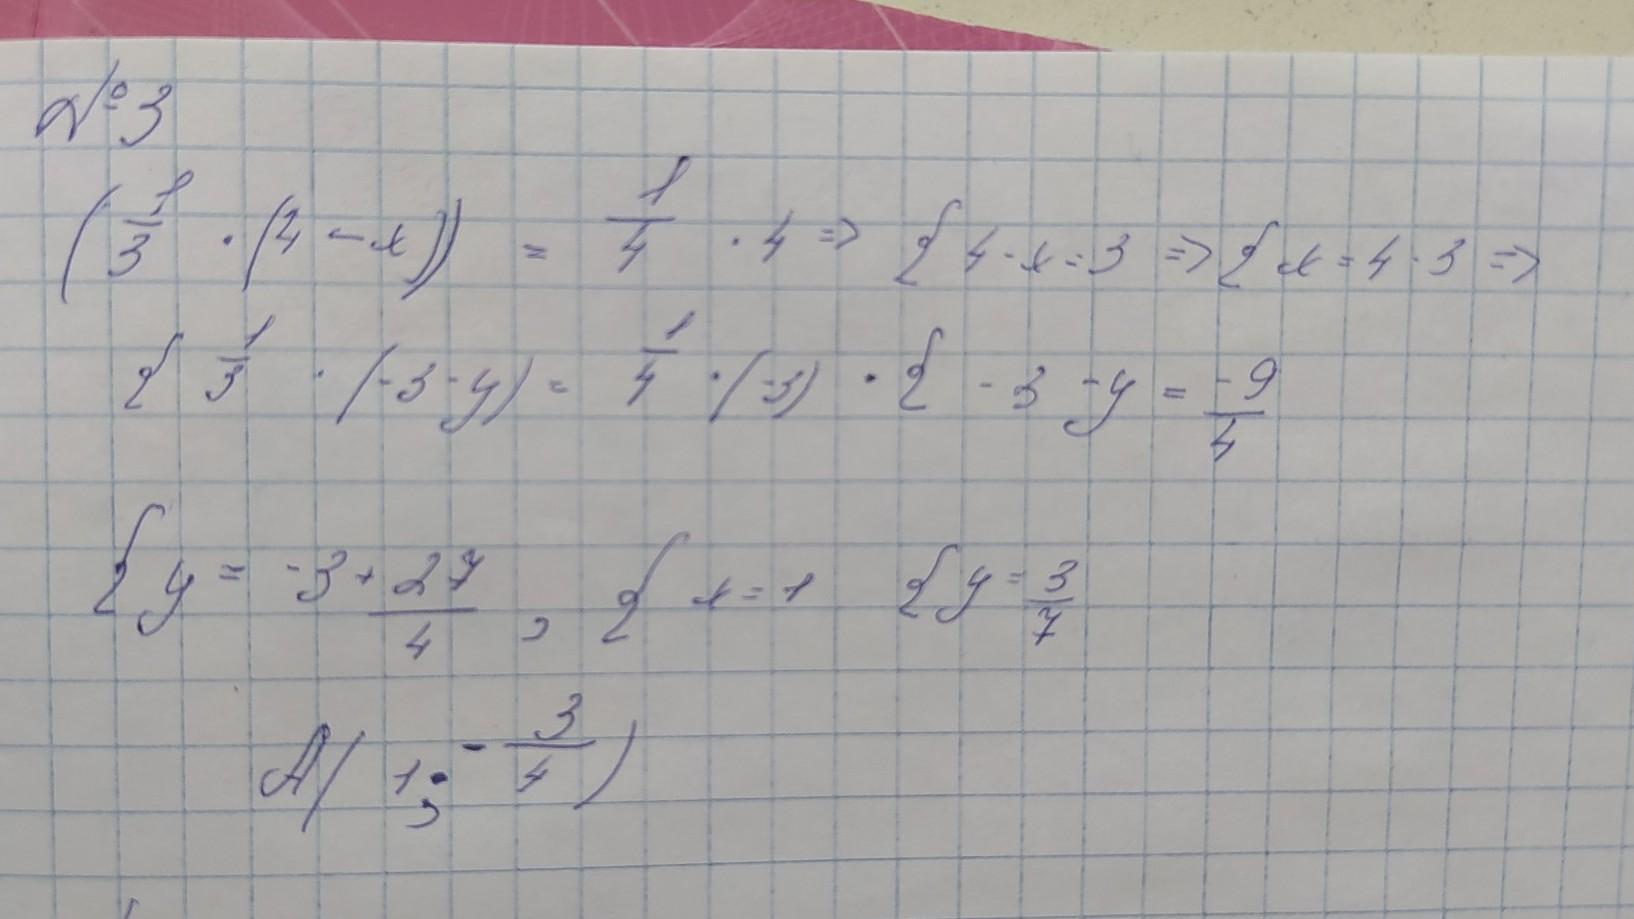 №3
(1/3 · (4 - x)) = 1/4 · 4 => { 4 - x = 3 => { x = 4 - 3 =>
{ 1/3 · (-3 - y) = 1/4 · (-3) · { -3 - y = -9/4
{ y = -3 + 27/4 , { x = 1 { y = 3/7
A( 1; - 3/4 )